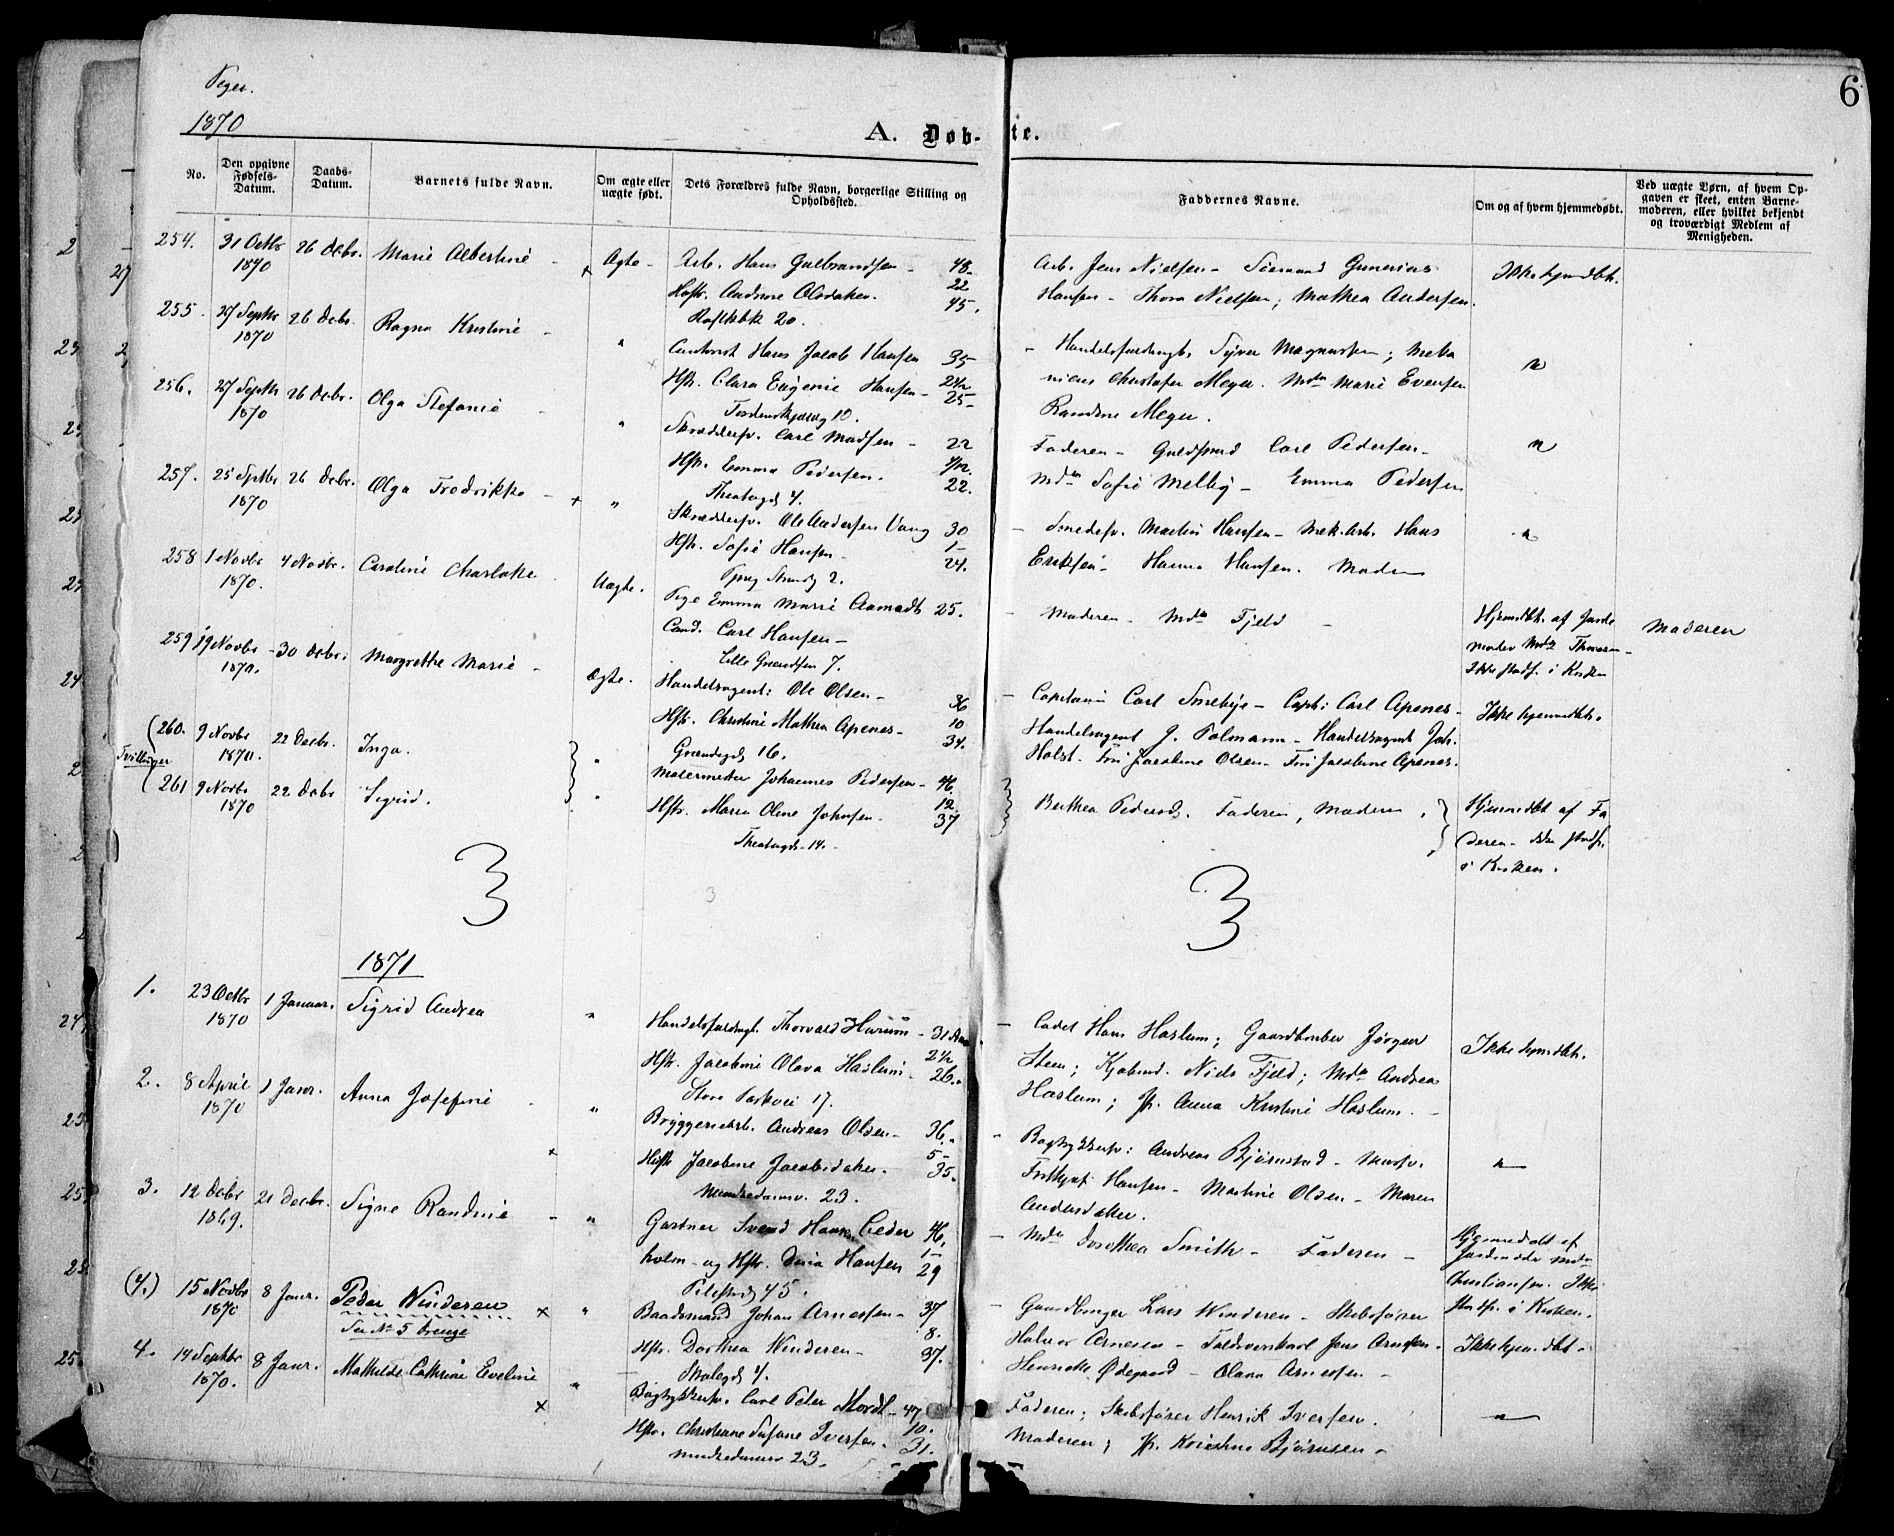 Piger.
1870
6
A. Døb-te.
No.
Den opgivne Fødsels-Datum.
Daabs-Datum.
Barnets fulde Navn.
Om ægte eller uægte født.
Dets Forældres fulde Navn, borgerlige Stilling og Opholdssted.
Faddernes Navne.
Om og af hvem hjemmedøbt.
Ved uægte Børn, af hvem Opgaven er skeet, enten Barnemoderen, eller hvilket bekjendt og troværdigt Medlem af Menigheden.
254. 31 Octbr 1870 26 Decbr. Marie Albertine Ægte
Arb. Hans Gulbrandsen 48
22
Hstr. Andrine Olsdatter. 45.
20.
Arb. Jens Nielsen - Gunerius
Hansen - Thora Nielsen; Mathea Andersen.
Ikke hjmdbt.
255. 27 Septbr 1870 26 Decbr. Ragna Kristine "
Hans Jacob Hansen 35
2 1/2
Hstr. Clara Eugenie Hansen 25
10.
Handelsfuldmgt. Syver Magnussen; Mekanicus Christofer Meyer. Mda Marie Evensen
Randine Meyer.
"
256. 27 Septbr 1870 26 Decbr. Olga Stefanie "
Skræddersv. Carl Madsen 22
Hstr. Emma Pedersen. 22.
Theatergd 4.
Faderen - Guldsmed Carl Pedersen
Mda Sofie Melby - Emma Pedersen
"
257. 25 Sptbr 1870 26 Decbr. Olga Fredrikke "
Skræddersv. Ole Andersen Vang 30
1
Hstr. Sofie Hansen 24.
2.
Smedesv. Martin Hansen - Mek. Arb. Hans
Eriksen - Hanna Hansen. Moderen
"
258 1 Novbr 1870. 4 Novbr. Caroline Charlotte Uægte.
Pige Emma Marie Aamodt 25.
Cand. Carl Hansen
Lille Grændsen 7.
Moderen - Mda Fjeld
Hjemdbt. af Jordemoder Mda
Ikke stadf. i Kirken
Moderen
259 19 Novbr 1870. 30 Decbr. Margrethe Marie Ægte.
Handelsagent: Ole Olsen 36
10
Hstr. Christine Mathea Apenes 34.
Grændsegd 16.
Capitain Carl Smebye - Capt: Carl Apenes
Handelsagent J. Polmann - Handelsagent Joh.
Holst. Fru Jacobine Olsen - Frk Jacobine Apenes.
Ikke hjemmedbt.
Tvillinger
260. 9 Novbr 1870. 22 Decbr. Inga. "
261 9 Novbr 1870 22 Decbr Sigrid. "
Malermester Johannes Pedersen 46.
12.
Hstr. Maren Oline Johnsen. 37
Theatergd 14.
Berthea Pedersd. Faderen, Moderen.
Hjemmedbt af Faderen - ikke stadf. i Kirken.
3
3
3
1871
1. 23 Octbr 1870 1 Januar. Sigrid Andrea "
Handelsfuldmgt. Thorvald Huruum 31 Aar
2 1/2
Hstr. Jacobine Olava Haslum 26.
Store Parkvei 17.
Cadet Hans Haslum; Gaardbruger Jørgen
Steen; Kjøbmd. Niels Fjeld; Mda Andrea
Haslum; Jfr. Anna Kristine Haslum.
Ikke hjmdbt.
2. 8 April 1870 1 Janr. Anna Josefine "
Bryggeriarb. Andreas Olsen 36.
5
Hstr Jacobine Jacobsdatter 35.
Munkedamsv. 23.
Bogtrykkersv: Andreas Bjørnstad - Mursv.
Frithjof Hansen - Martine Olsen - Maren
Andersdatter.
"
3. 12 Decbr 1869. 21 Decbr. Signe Randine "
Gartner Svend Hansen Ceder 46.
1
holm - og Hstr. Dina Hansen 29
Pilestrd 45.
Mda Dorothea Smith - Faderen
Hjemmedøbt af Jordemoder Mda
Christiansen. Ikke
stadf. i Kirken.
(4.) 15 Novbr 1870 8 Janr. Peder Winderen "
Se No 5 Drenge
Baadsmand Johan Arnesen 37
8.
Hstr. Dorthea Winderen 37.
Skolegd 4.
Gaardbruger Lars Winderen - Skibsfører
Halvor Arnesen - Toldvonkarl Jens Arnesen.
Henriette Ødegaard - Olava Arnesen
Ikke hjemdbt.
4. 14 Septbr 1870. 8 Janr. Mathilde Cathrine Eveline "
Bogtrykkersv. Carl Peter Mordt 47
10.
Hstr. Christiane Sofane Iversen. 31.
Munkedamsv 23.
Faderen; Skibsfører Henrik Iversen.
Moderen; Jfr. Kristine Bjørnsen
"